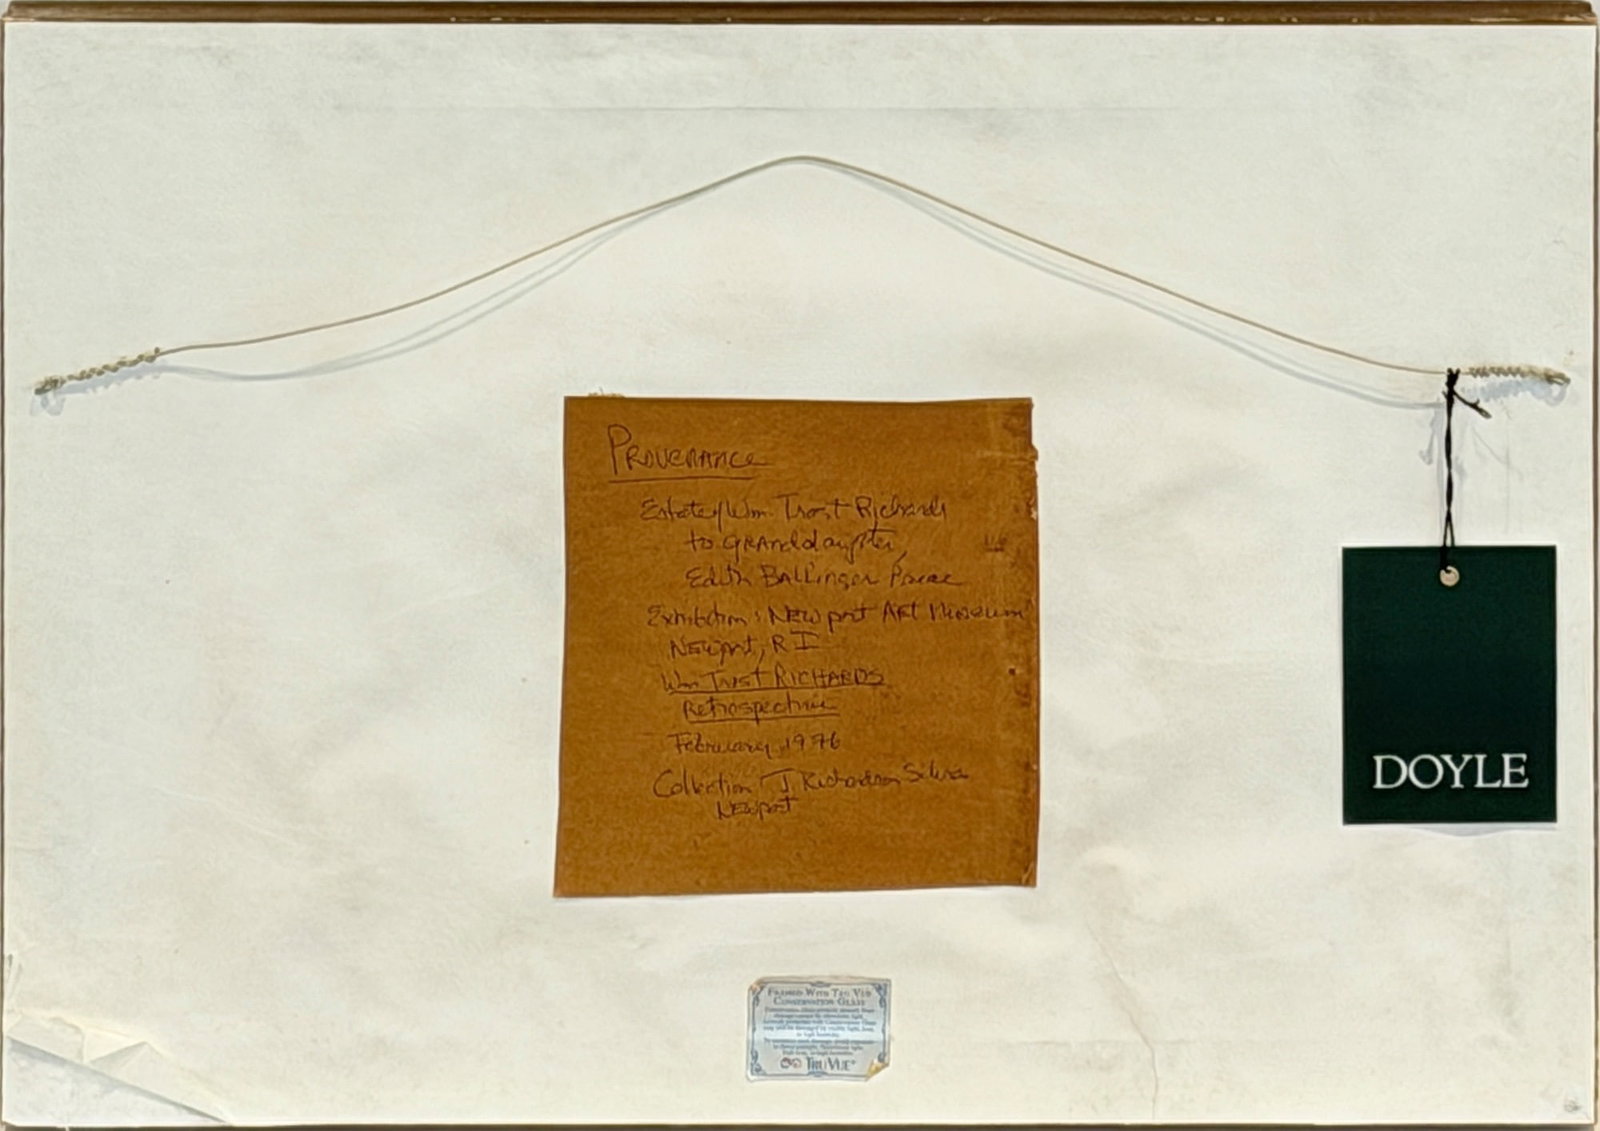 Provenance
Estate of Wm. Trost Richards
to Granddaughter,
Edith Ballinger Price
Exhibition: Newport Art Museum
Newport, RI
Wm Trost RICHARDS
Retrospective
February, 1976
Collection J Richardson
Newport
DOYLE
FRAMED WITH TRU VUE
CONSERVATION GLASS
TRU VUE